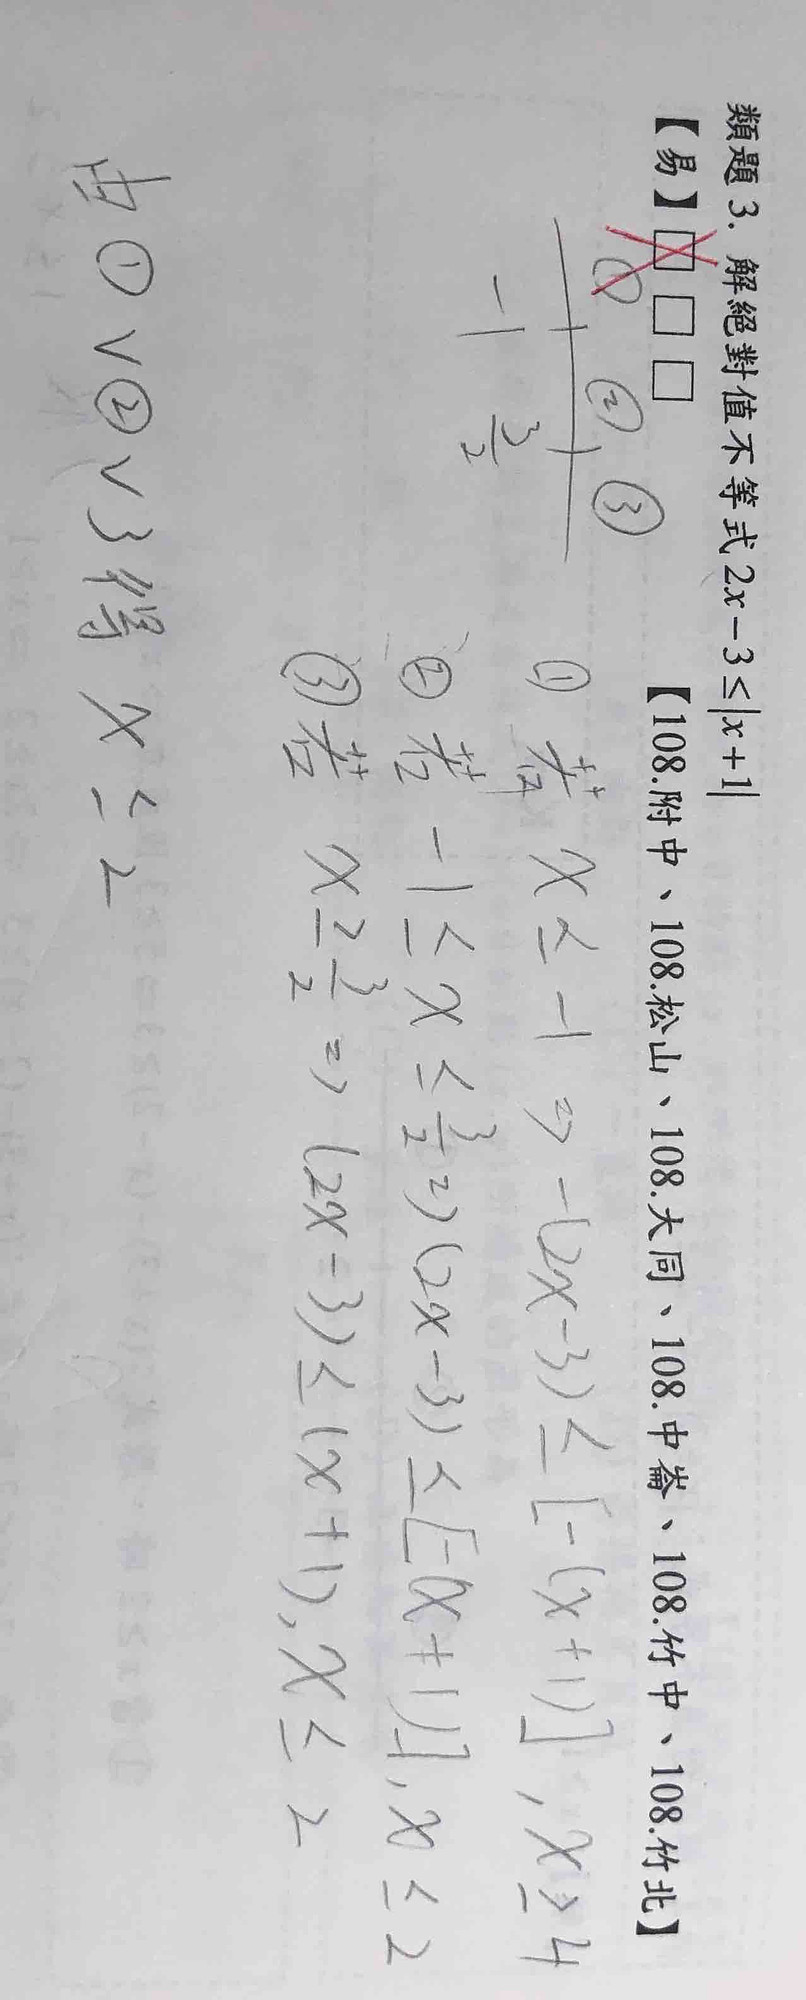 類題 3. 解絕對值不等式 2x-3≤|x+1|
【易】□□□ 【108.附中、108.松山、108.大同、108.中崙、108.竹中、108.竹北】
① ② ③
-1 3/2
① 若 x ≤ -1 ⇒ -(2x-3) ≤ [-(x+1)], x ≥ 4
② 若 -1 ≤ x ≤ 3/2 ⇒ (2x-3) ≤ [-(x+1)], x ≤ 2
③ 若 x ≥ 3/2 ⇒ (2x-3) ≤ (x+1), x ≤ 2
由 ① ∨ ② ∨ 3 得 x ≤ 2